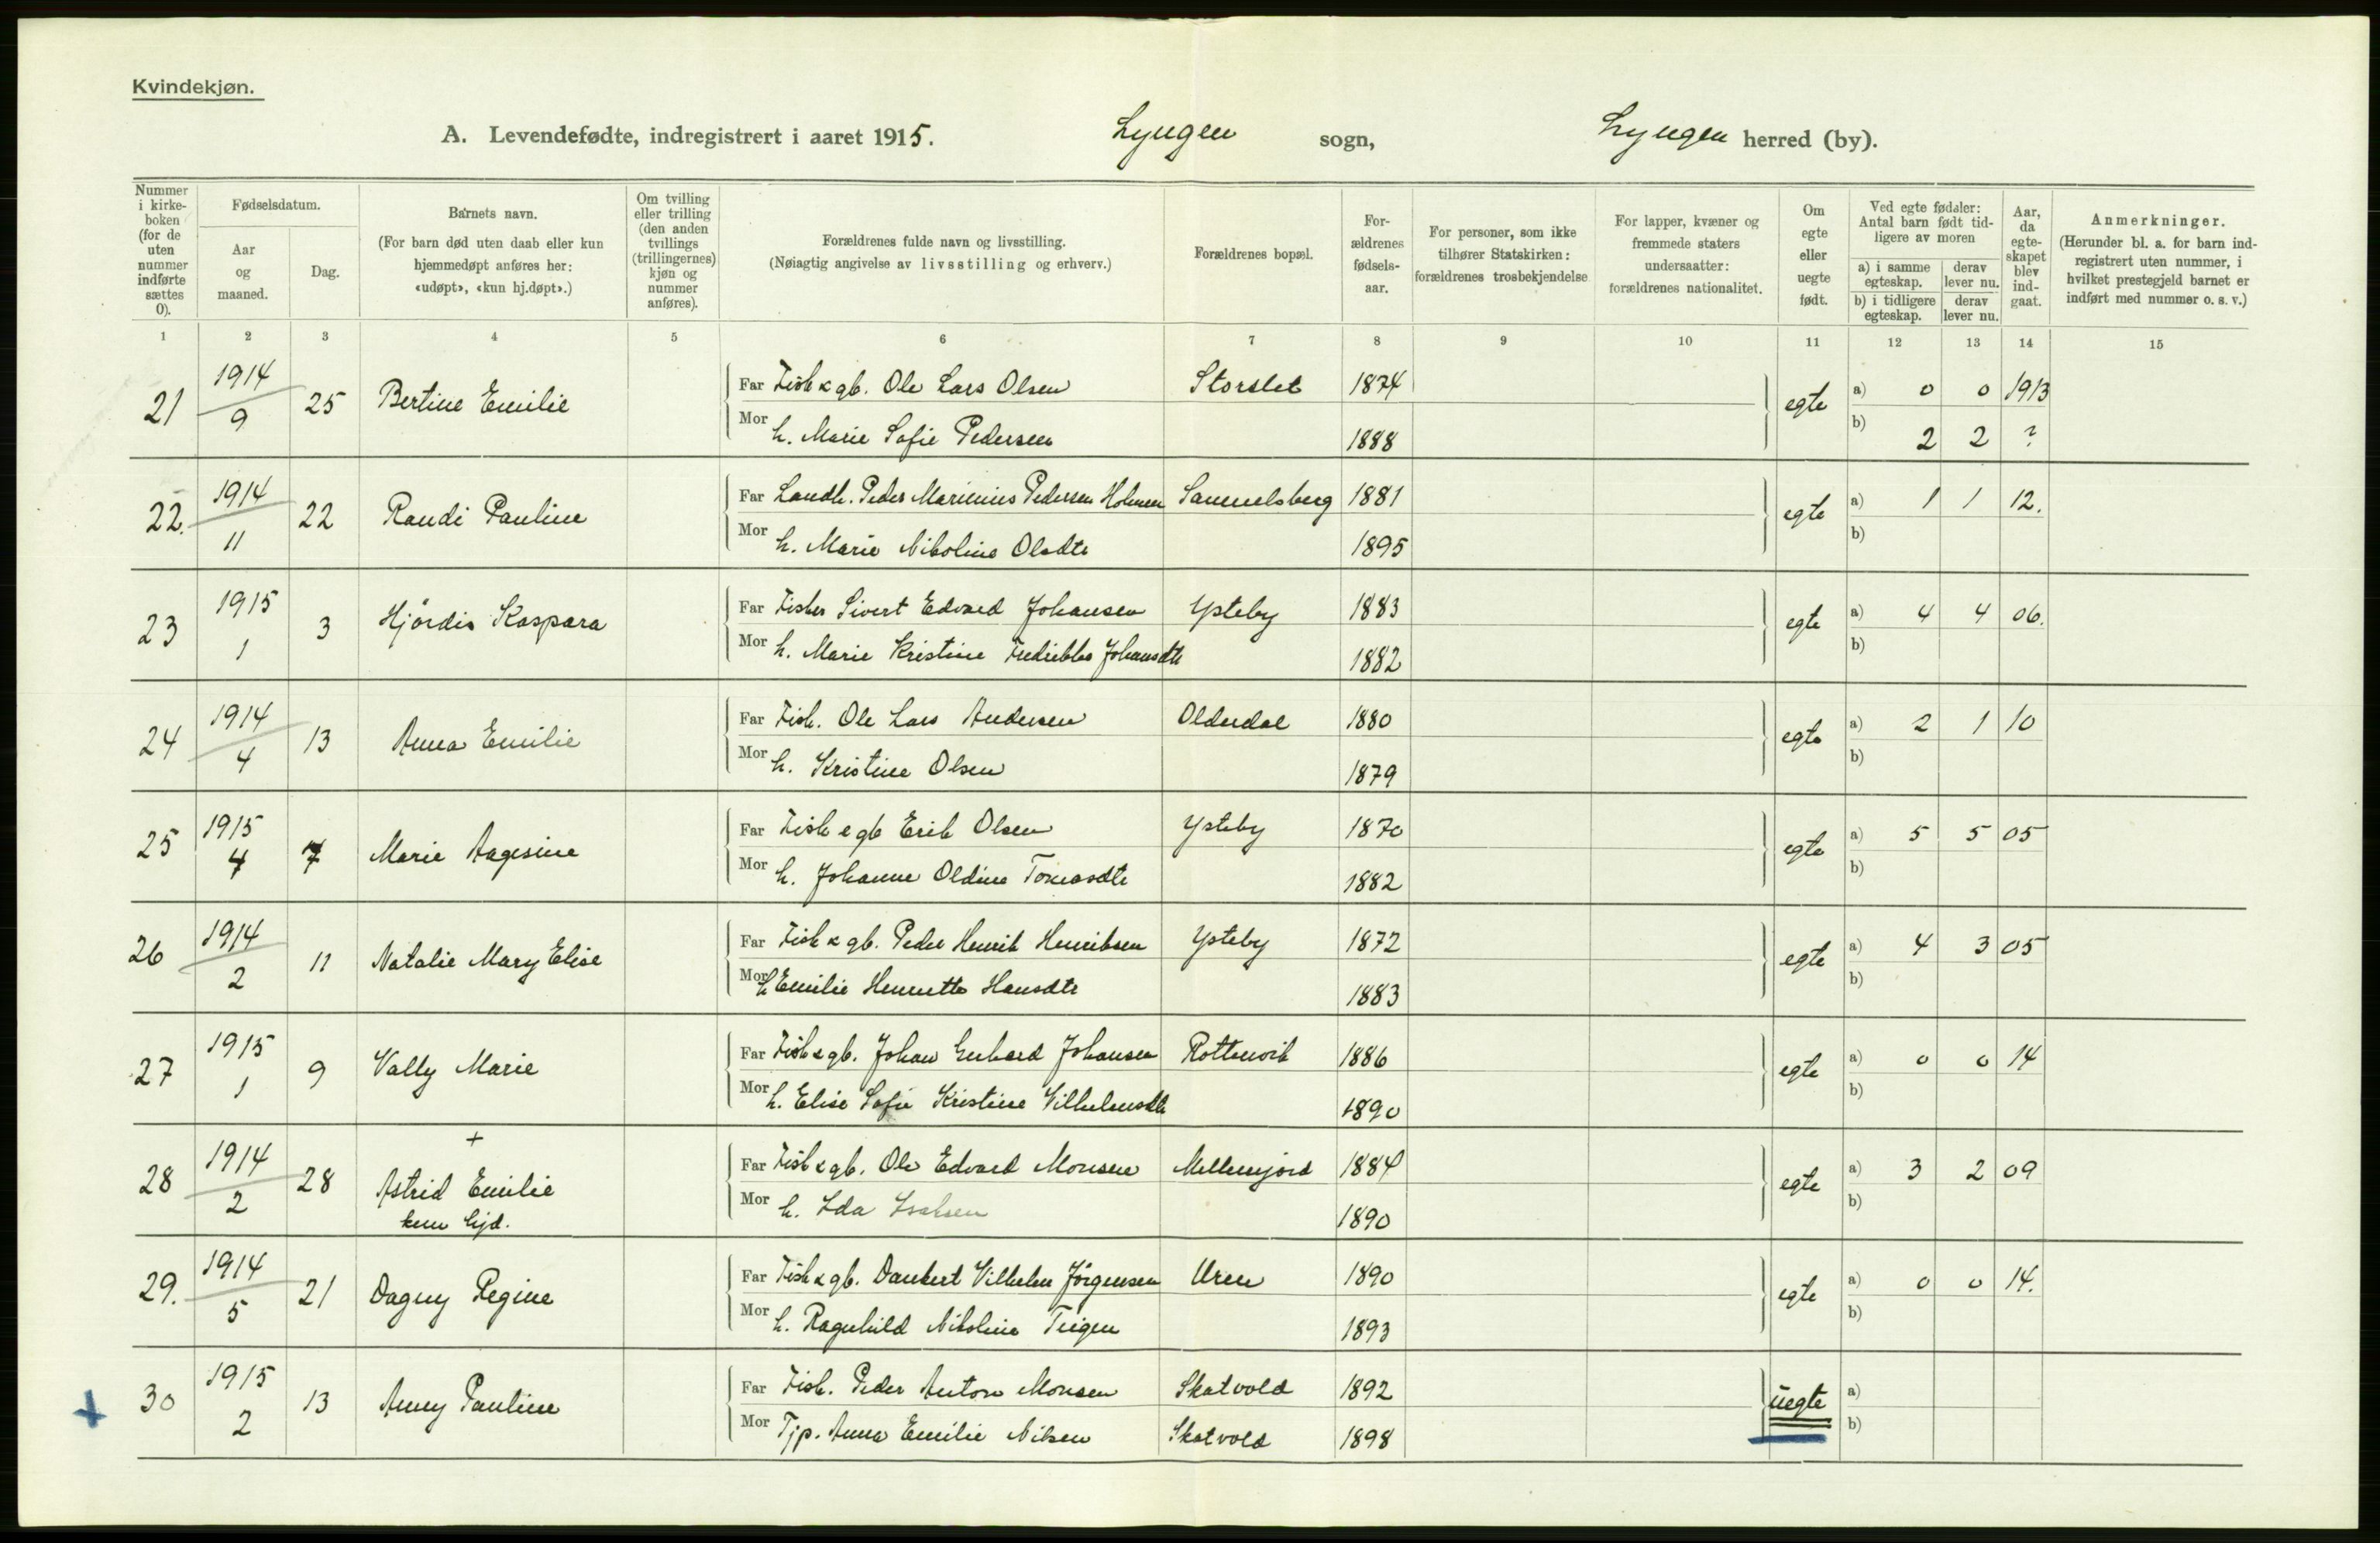 Kvindekjøn.
A. Levendefødte, indregistrert i aaret 1915. Lyngen sogn, Lyngen herred (by).
Nummer i kirkeboken (for de uten nummer indførte sættes 0).
Fødselsdatum.
Aar og maaned.
Dag.
Barnets navn.
(For barn død uten daab eller kun hjemmedøpt anføres her: «udøpt», «kun hj.døpt».)
Om tvilling eller trilling (den anden tvillings (trillingernes) kjøn og nummer anføres).
Forældrenes fulde navn og livsstilling.
(Nøiagtig angivelse av livsstilling og erhverv.)
Forældrenes bopæl.
For-ældrenes fødsels-aar.
For personer, som ikke tilhører Statskirken: forældrenes trosbekjendelse
For lapper, kvæner og fremmede staters undersaatter: forældrenes nationalitet.
Om egte eller uegte født.
Ved egte fødsler: Antal barn født tid-ligere av moren
a) i samme egteskap. derav lever nu.
b) i tidligere egteskap. derav lever nu.
Aar, da egte-skapet blev ind-gaat.
Anmerkninger.
(Herunder bl. a. for barn ind-registrert uten nummer, i hvilket prestegjeld barnet er indført med nummer o. s. v.)
1 2 3 4 5 6 7 8 9 10 11 12 13 14 15
21 1914 9 25 Bertine Emilie Far Fisk & gb. Ole Lars Olsen Storslet 1874 egte a) 0 0 1913
Mor h. Marie Sofie Pedersen 1888 b) 2 2 ?
22. 1914 11 22 Randi Pauline Far Landh. Peder Marinius Pedersen Holmen Samuelsberg 1881 egte a) 1 1 12.
Mor h. Marie Nikoline Olsdtr 1895 b)
23 1915 1 3 Hjördis Kaspara Far Fisker Sivert Edvard Johansen Ysteby 1883 egte a) 4 4 06.
Mor h. Marie Kristine Fredrikke Johansdtr 1882 b)
24 1914 4 13 Anna Emilie Far Fisk. Ole Lars Andersen Olderdal 1880 egte a) 2 1 10
Mor h. Kristine Olsen 1879 b)
25 1915 4 7 Marie Aagesine Far Fisk & gb Erik Olsen Ysteby 1870 egte a) 5 5 05
Mor h. Johanne Oldine Tomasdtr 1882 b)
26 1914 2 11 Natalie Mary Elise Far Fisk & gb. Peder Henrik Henriksen Ysteby 1872 egte a) 4 3 05
Mor h Emilie Henrette Hansdtr 1883 b)
27 1915 1 9 Vally Marie Far Fisk & gb. Johan Gerhard Johansen Rottenvik 1886 egte a) 0 0 14
Mor h. Elise Sofie Kristine Vilhelmsdtr 1890 b)
+
28 1914 2 28 Astrid Emilie Far Fisk & gb. Ole Edvard Monsen 1884 egte a) 3 2 09
kun hjd. Mor h. Ida Isaksen 1890 b)
29. 1914 5 21 Dagny Regine Far Fisk & gb. Daubert Vilhelm Jörgensen Uren 1890 egte a) 0 0 14.
Mor h. Ragnhild Nikoline Teigen 1893 b)
+ 30 1915 2 13 Anny Pauline Far Fisk. Peder Anton Monsen Skatvold 1892 uegte a)
Mor Tjp. Anna Emilie Nilsen Skatvold 1898 b)